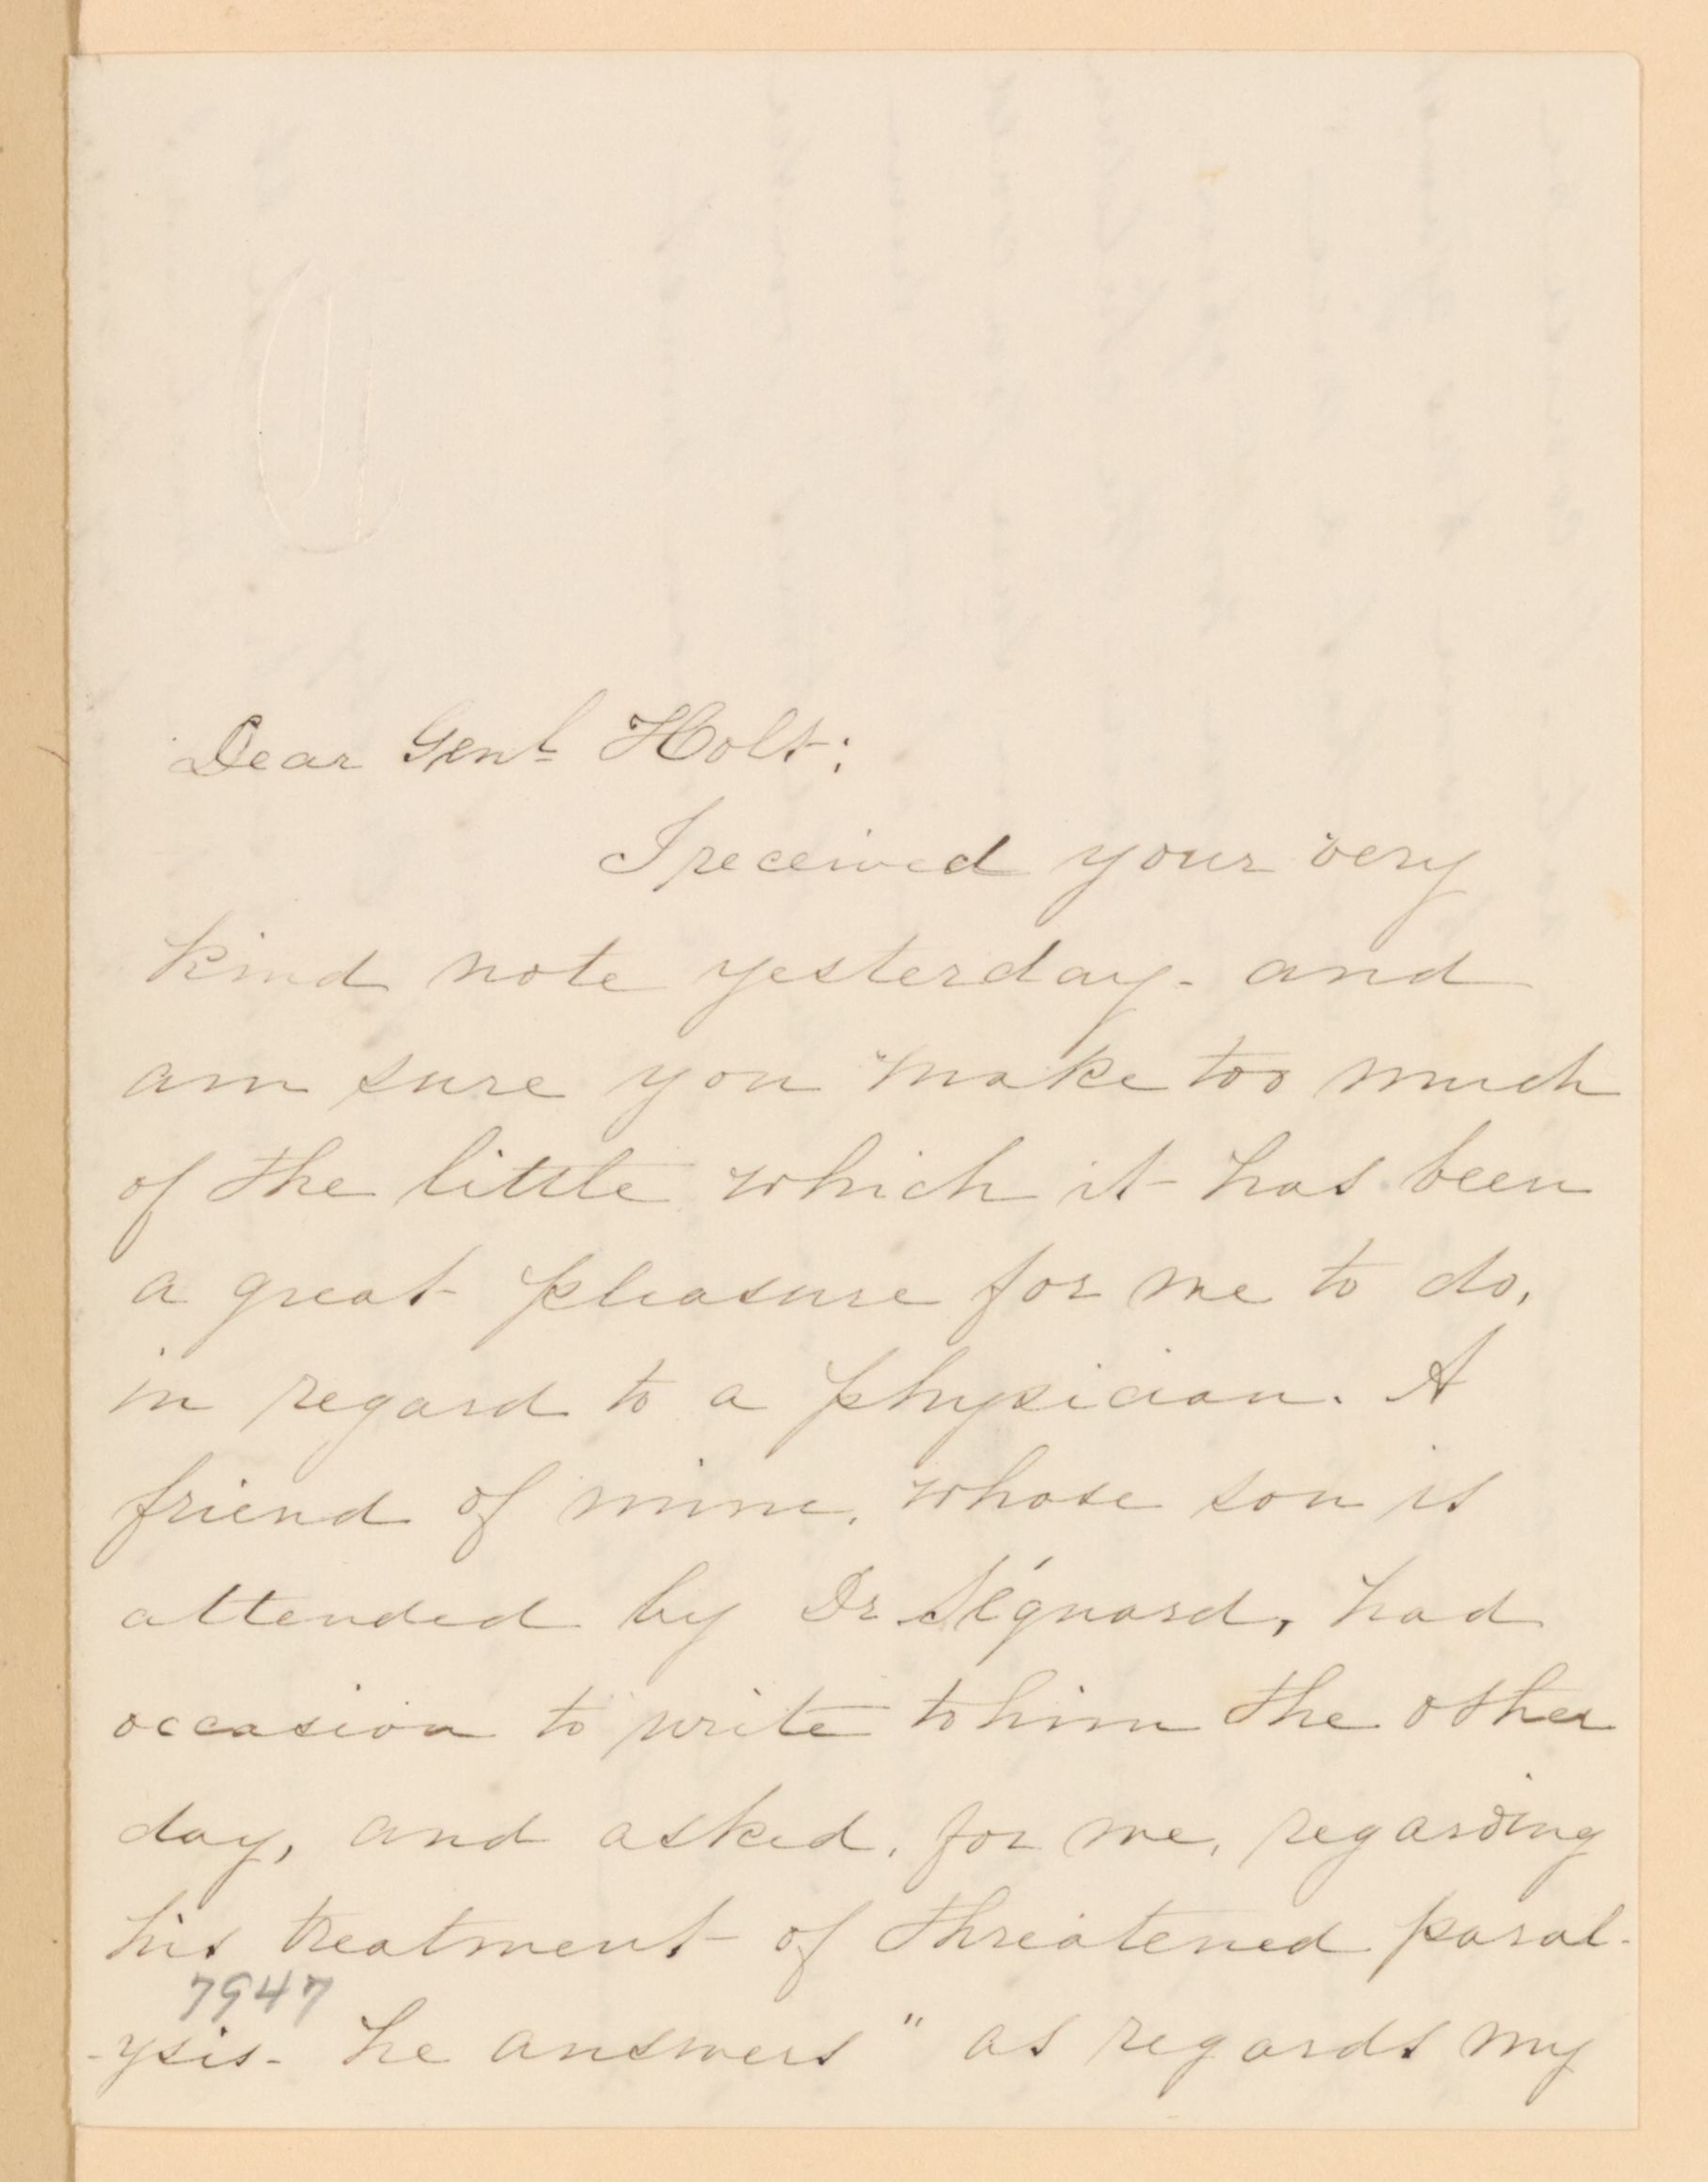 Dear Genl Holt:
I received your very
kind note yesterday- and
am sure you make too much
of the little which it has been
a great pleasure for me to do,
in regard to a physician. A
friend of mine, whose son is
attended by Dr Séquard, had
occasion to write to him the other
day, and asked, for me, regarding
his treatment of threatened paral-
7947
-ysis- he answers " as regards my